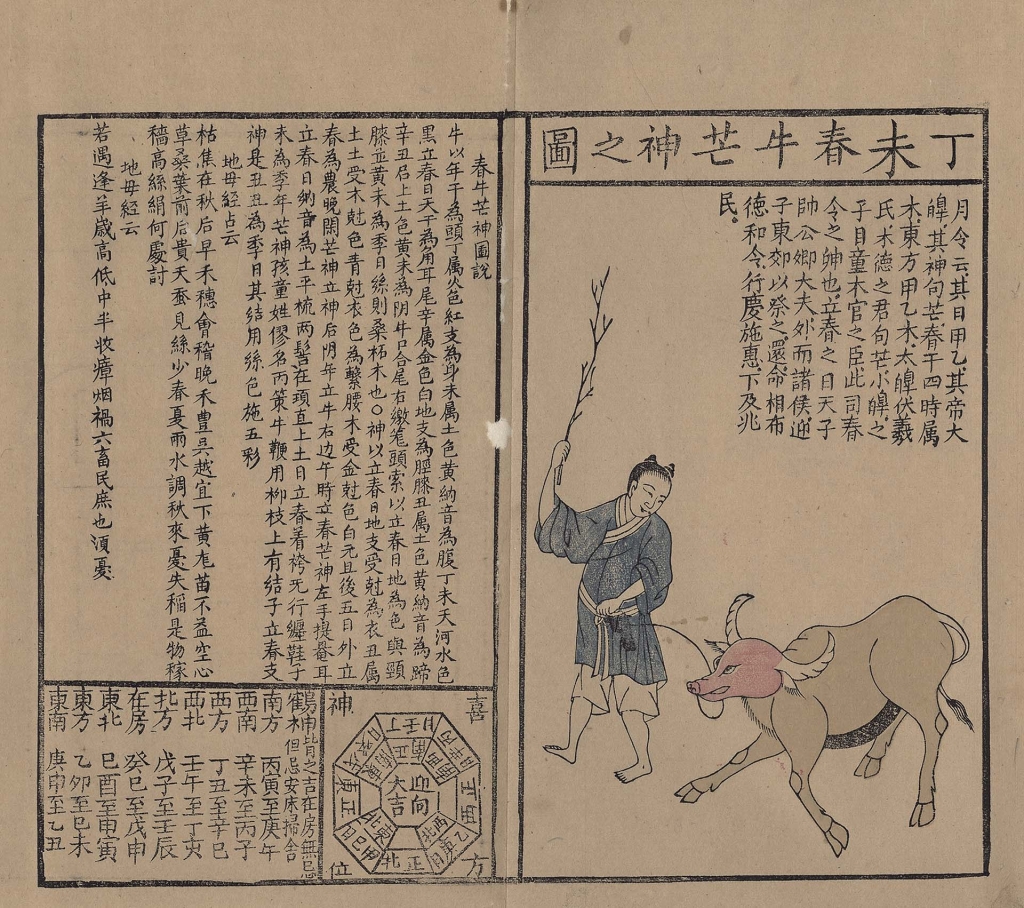 丁未春牛芒神之圖
月令云其日甲乙其帝大
皥其神句芒春干四時属
木東方甲乙木太皥伏羲
氏木徳之君句芒小皥之
子目童木官之臣此司春
令之神也立春之日天子
帥公卿大夫外而諸侯迎
子東郊以祭之還命相布
徳和令行慶施惠下及兆
民。
春牛芒神圖説
牛以年干為頭丁属火色紅支為身未属土色黄納音為腹丁未天河水色
黒立春日天干為角耳尾辛属金色白地支為脛膝丑属土色黄納音為蹄
辛丑启上土色黄未為阴牛口合尾右繳笼頭索以立春日地為色與頸
膝並黄未為季日絲則桑柘木也〇神以立春日地支受尅為衣丑属
土土受木尅色青尅衣色為繫腰木受金尅色白元旦後五日外立
春為農晚閑芒神立神后阴年立牛右边午時立春芒神左手提罨耳
立春日納音為土平梳两髻在頊直上土日立春着袴无行纏鞋子
未為季年芒神孩童姓僇名丙策牛鞭用柳枝上有结子立春支
神是丑丑為季日其结用絲色施五彩
地毋經占云
枯焦在秋后早禾穗會稽晚禾豊吳越宜下黄庬苗不益空心
草桑葉前后貴天蚕見絲少春夏雨水調秋來憂失稲是物稼
穡高絲絹何處討
地毋經云
若遇逢羊歳高低中半收瘴烟禍六畜民庶也湏憂
喜神方位
迎向大吉
正南
正西
正北
正東
鶴神皆之吉在房無忌
但忌安床掃舍
南方 丙寅至庚午
西南 辛未至丙子
西方 丁丑至辛巳
西北 壬午至丁亥
北方 戊子至壬辰
在房 癸巳至戊申
東北 己酉至甲寅
東方 乙卯至己未
東南 庚申至乙丑